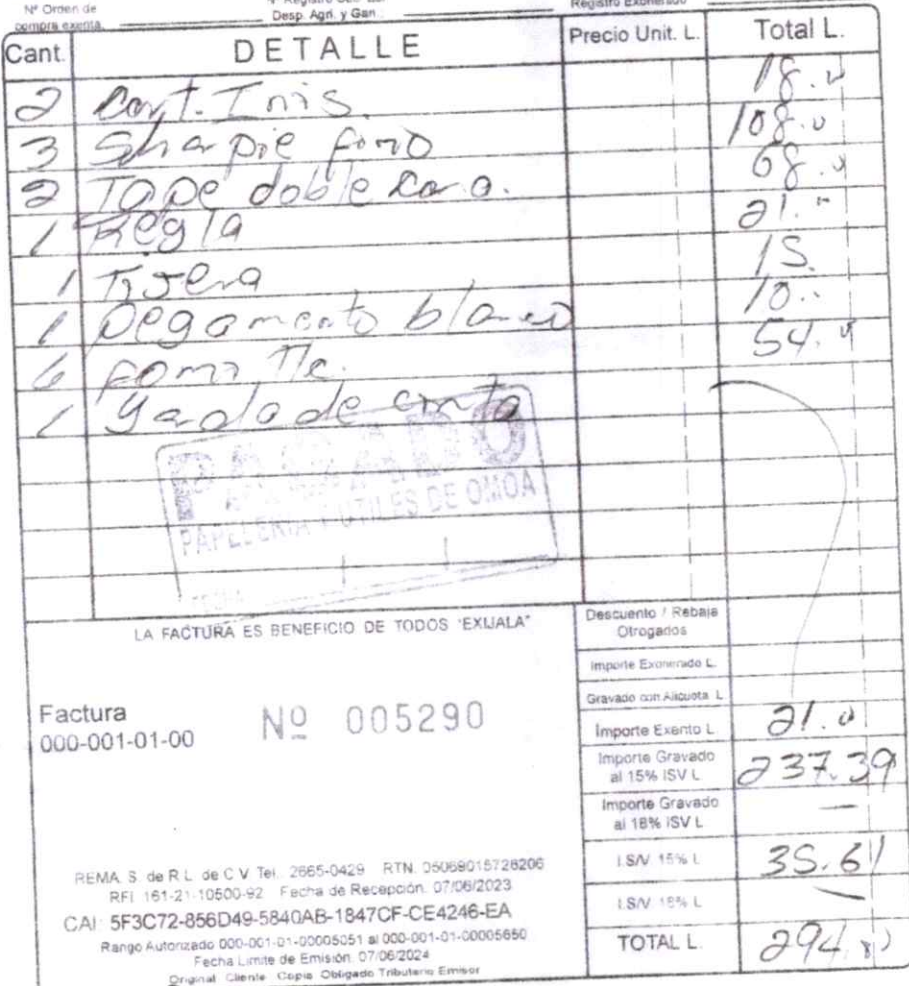 Nº Orden de
compra exenta
Desp. Agri. y Gan.
Registro Exonerado
Cant. DETALLE Precio Unit. L. Total L.
2 Cart. Inis. 18.
3 Sharpie fomo 108.
2 Tape doble cara. 68.
1 Regla 21.
1 Tijera 15.
1 pegamento blanco 10.
6 fomo 54.
1 Yarda de cinta
PAPELERIA Y UTILES DE OMOA
FECHA
LA FACTURA ES BENEFICIO DE TODOS "EXIJALA"
Descuento / Rebaja
Otrogados
Importe Exonerado L.
Gravado con Alicuota L.
Factura
000-001-01-00 Nº 005290
Importe Exento L. 21.
Importe Gravado
al 15% ISV L. 237.39
Importe Gravado
al 18% ISV L. —
I.S/V 15% L. 35.61
I.S/V 18% L. —
TOTAL L. 294.
REMA. S. de R.L. de C.V Tel.: 2665-0429 RTN. 05069015728206
RFI: 161-21-10500-92 Fecha de Recepción. 07/06/2023
CAI: 5F3C72-856D49-5840AB-1847CF-CE4246-EA
Rango Autorizado 000-001-01-00005051 al 000-001-01-00005650
Fecha Limite de Emisión. 07/06/2024
Original Cliente Copia Obligado Tributario Emisor